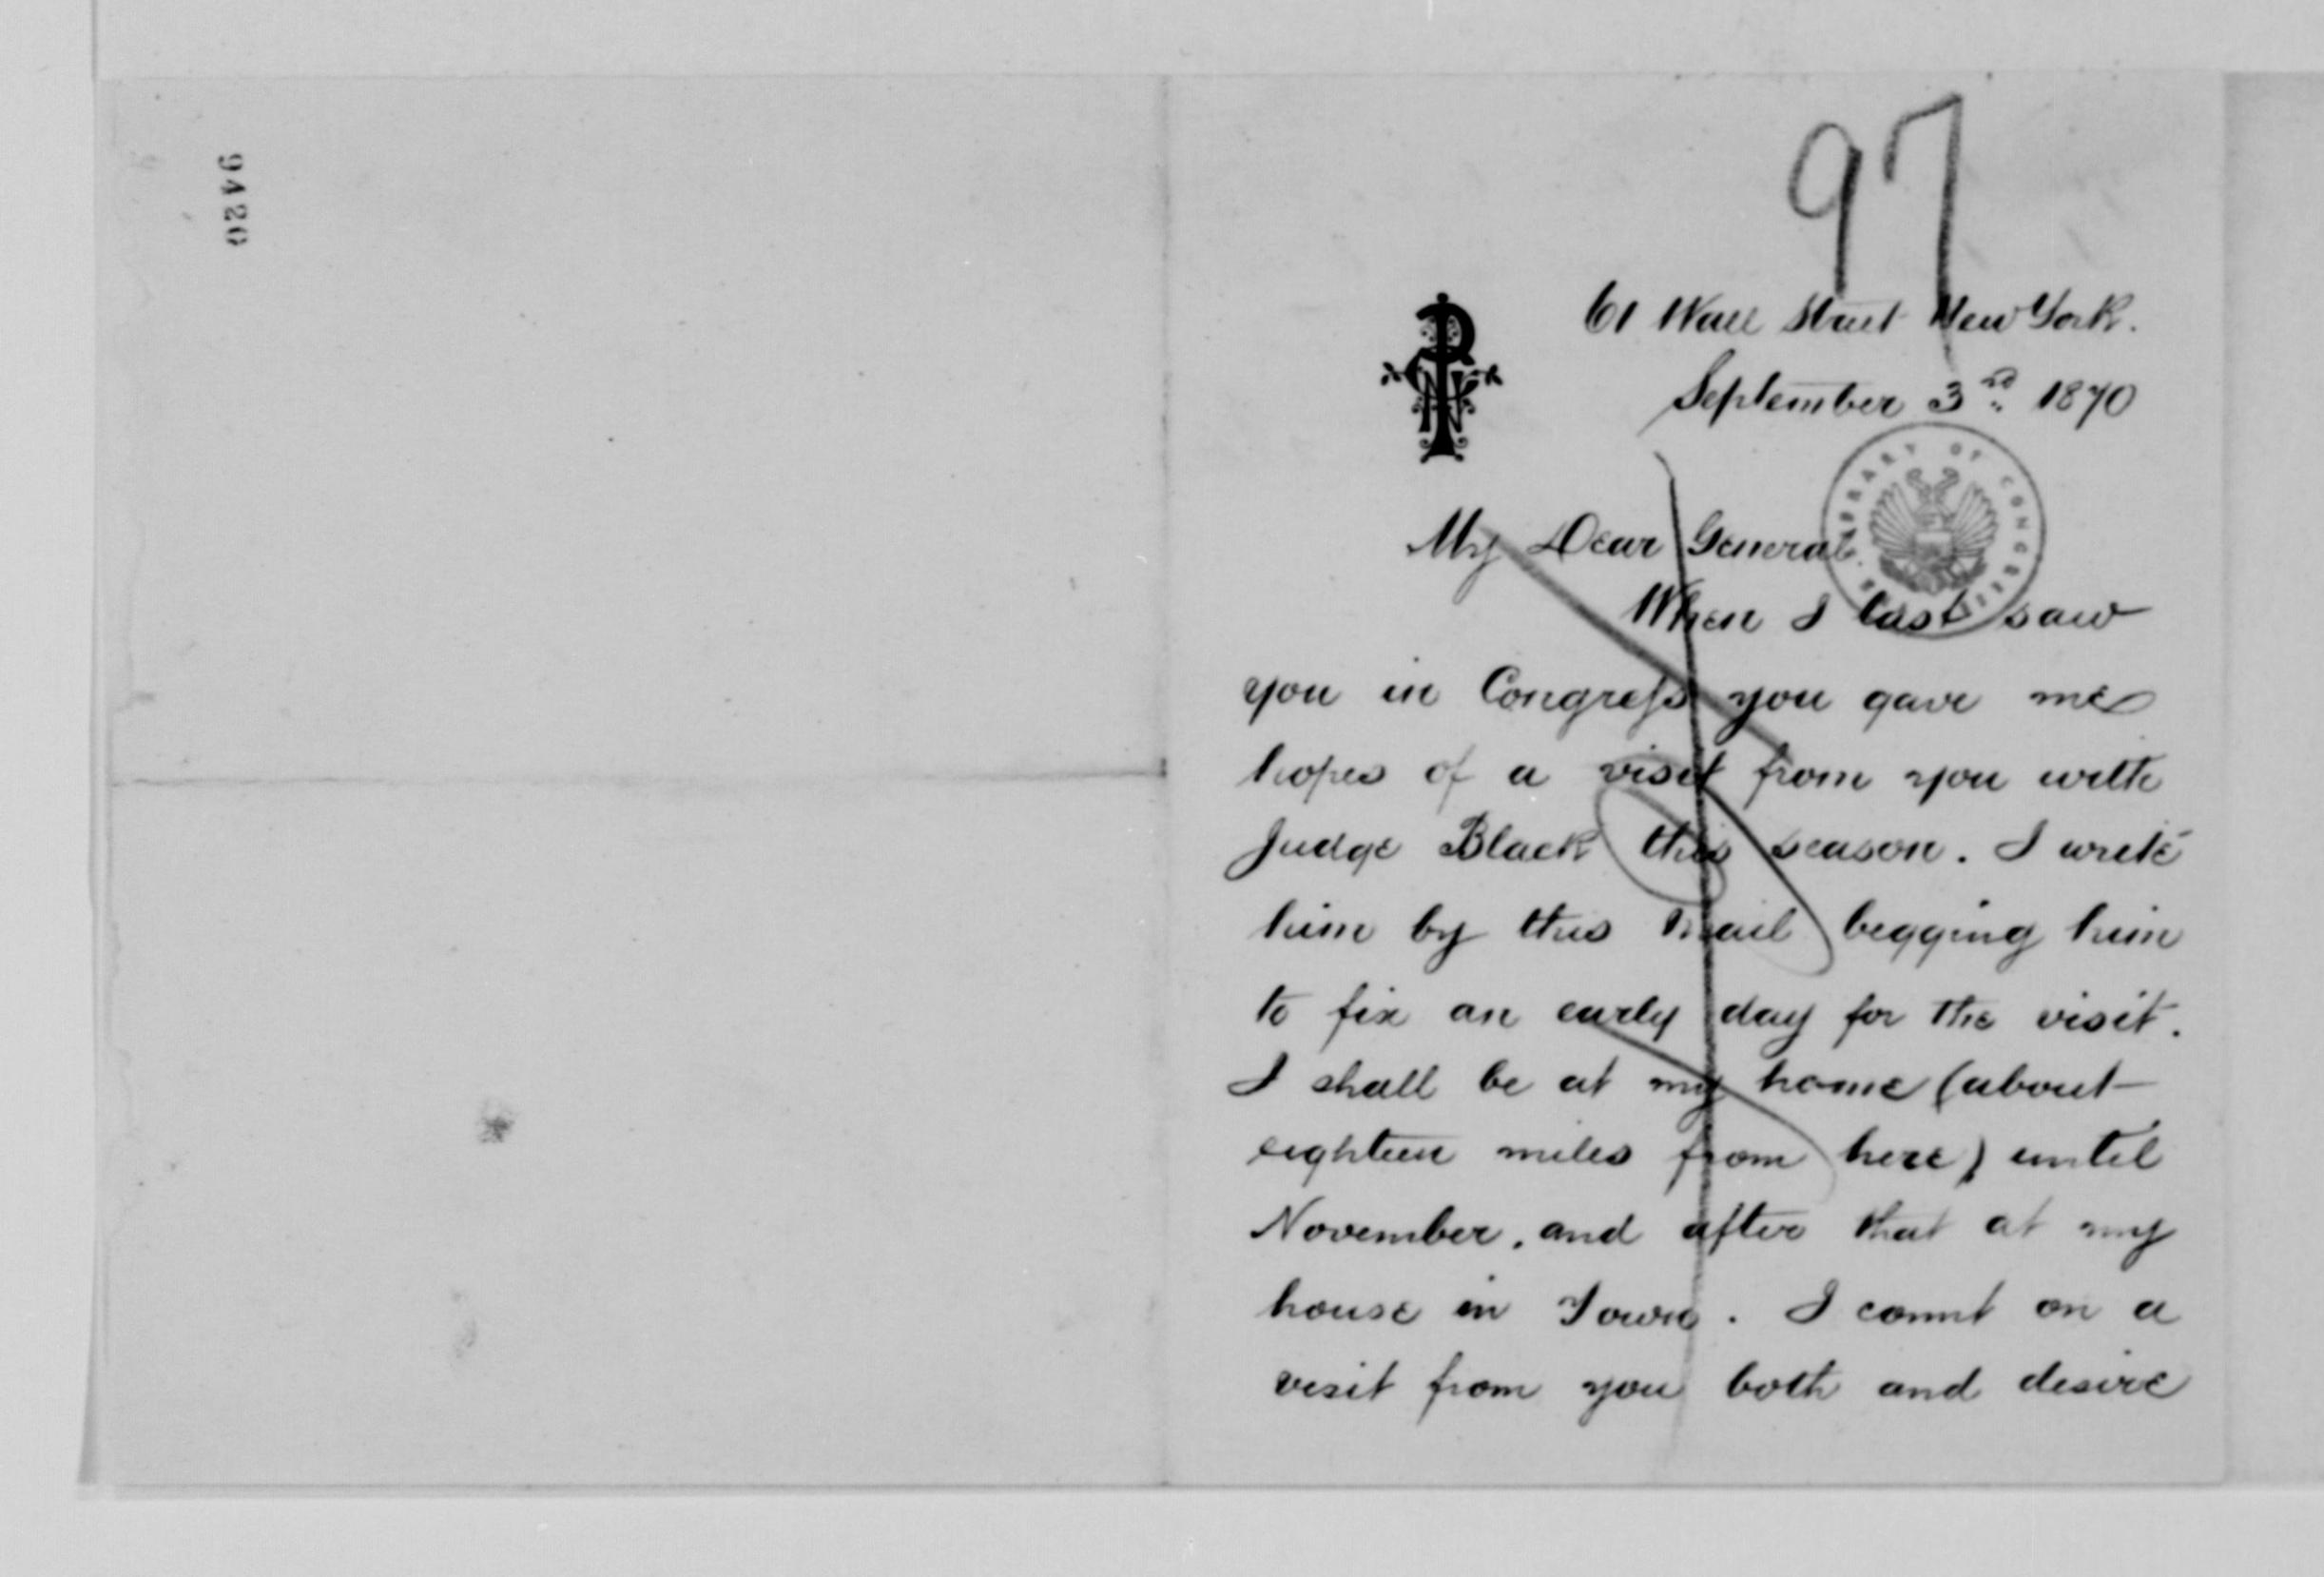 9420
97
61 Wall Street New York.
September 3rd 1870
LIBRARY OF CONGRESS
My Dear General.
When I last saw
you in Congress you gave me
hopes of a visit from you with
Judge Black this season. I write
him by this mail begging him
to fix an early day for the visit.
I shall be at my home (about
eighteen miles from here) until
November, and after that at my
house in Town. I count on a
visit from you both and desire